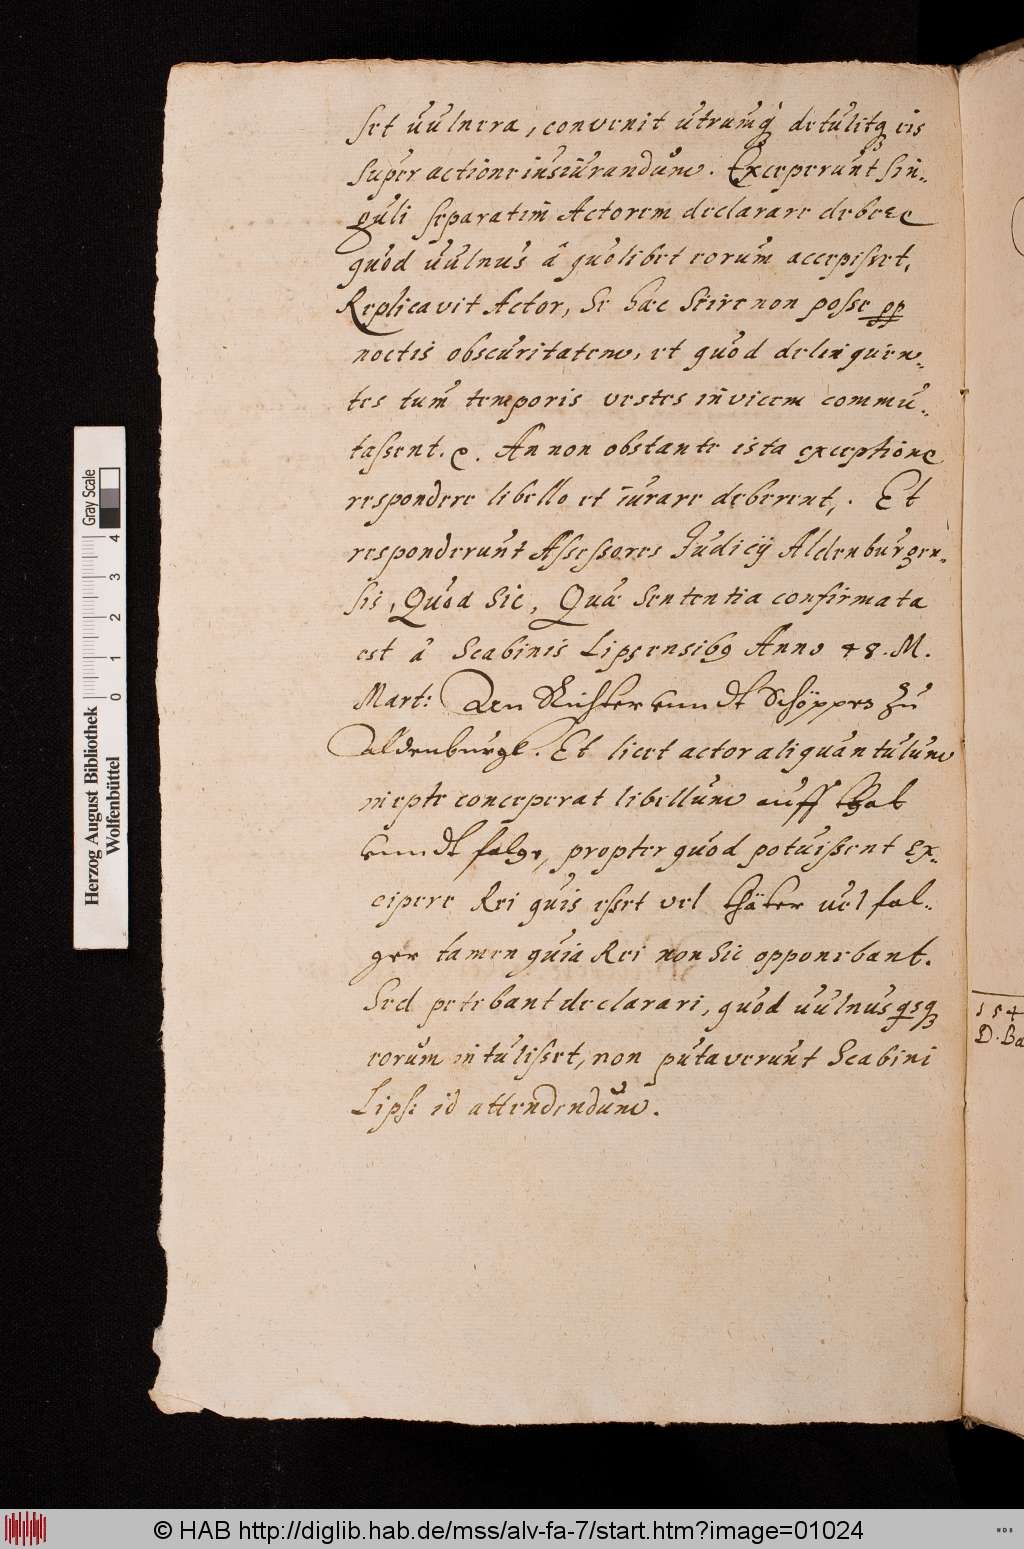 set vulnera, convenit utrumq́ detulitq eis
super actione iusiurandum. Exceperunt sin-
guli separatim Actorem declarare debere
quod vulnus â quolibet eorum accepisset,
Replicavit Actor, Se haec scire non posse pp
noctis obscuritatem, et quod delinquen-
tes tum temporis vestes invicem commu-
tassent. c. An non obstante ista exceptione
respondere libello et iurare deberent,. Et
responderunt Assessores Judicij Aldenburgen-
sis, Quod sic, Quae sententia confirmata
est â Scabinis Lipsensibg Anno 48. M.
Mart: Den Richter vnndt Schöppen zu
Aldenburgk. Et licet actor aliquantulum
inepte conceperat libellum auff that
vnndt folge, propter quod potuissent ex-
cipere Rei quis esset vel thäter vel fol-
ger tamen quia Rei non sic opponebant.
Sed petebant declarari, quod vulnus qsq
eorum intulisset, non putaverunt Scabini
Lips: id attendendum.
154
D. Ba
Herzog August Bibliothek
Wolfenbüttel
0 1 2 3 4
Gray Scale
© HAB http://diglib.hab.de/mss/alv-fa-7/start.htm?image=01024